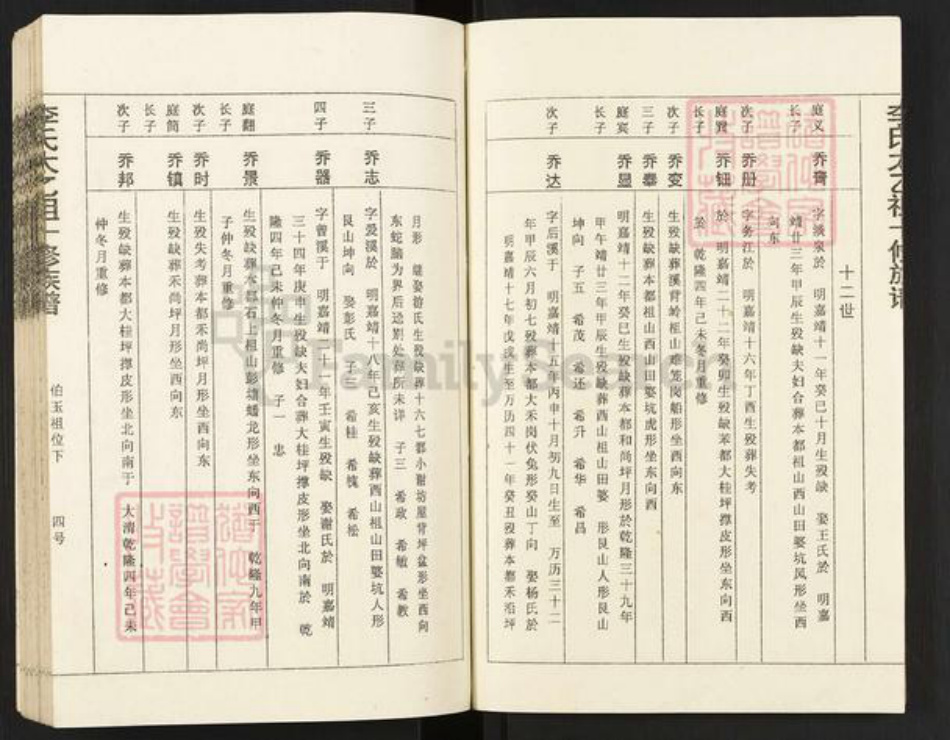 十二世
庭义长子 乔膏 字淡泉於 明嘉靖十一年癸巳十月生殁缺 娶王氏於 明嘉
靖廿三年甲辰生殁缺夫妇合葬本都祖山西山田婆坑凤形坐西
向东
次子 乔册 字务江於 明嘉靖十六年丁酉生殁葬失考
庭賓长子 乔钿 於 明嘉靖二十二年癸卯生殁缺葬本都大桂坪撑皮形坐东向西
於 乾隆四年己未冬月重修
次子 乔变 生殁缺葬溪背岭祖山难笼岗船形坐西向东
三子 乔泰 生殁缺葬本都祖山西山田婆坑虎形坐东向西
庭宾长子 乔显 明嘉靖十二年癸巳生殁缺葬本都和尚坪月形於乾隆三十九年
甲午 靖廿三年甲辰生殁缺葬西山祖山田婆 形艮山人形艮山
坤向 子五 希茂 希还 希升 希华 希昌
次子 乔达 字后溪于 明嘉靖十五年丙申十月初九日生至 万历三十二
年甲辰六月初七殁葬本都大禾岗伏兔形癸山丁向 娶杨氏於
明嘉靖十七年戊戌生至万历四十一年癸丑殁葬本都禾沿坪
月形 继娶游氏生殁缺葬十六七都小谢坊屋背坪盆形坐西向
东蛇脑为界后迯别处葬所未详 子三 希政 希敏 希教
三子 乔志 字爱溪於 明嘉靖十八年己亥生殁缺葬西山祖山田婆坑人形
艮山坤向 娶彭氏 子三 希桂 希槐 希松
四子 乔器 字曾溪于 明嘉靖二十一年壬寅生殁缺 娶谢氏於 明嘉靖
三十四年庚申生殁缺夫妇合葬大桂坪撑皮形坐北向南於 乾
隆四年己未仲冬月重修 子一 忠
庭翻长子 乔景 生殁缺葬本都石上祖山彭塘蟠龙形坐东向西于 乾隆九年甲
子仲冬月重修
次子 乔时 生殁失考葬本都禾尚坪月形坐西向东
庭简长子 乔镇 生殁缺葬禾尚坪月形坐西向东
次子 乔邦 生殁缺葬本都大桂坪撑皮形坐北向南于 大清乾隆四年己未
仲冬月重修
伯玉祖位下 四号
FamilySearch